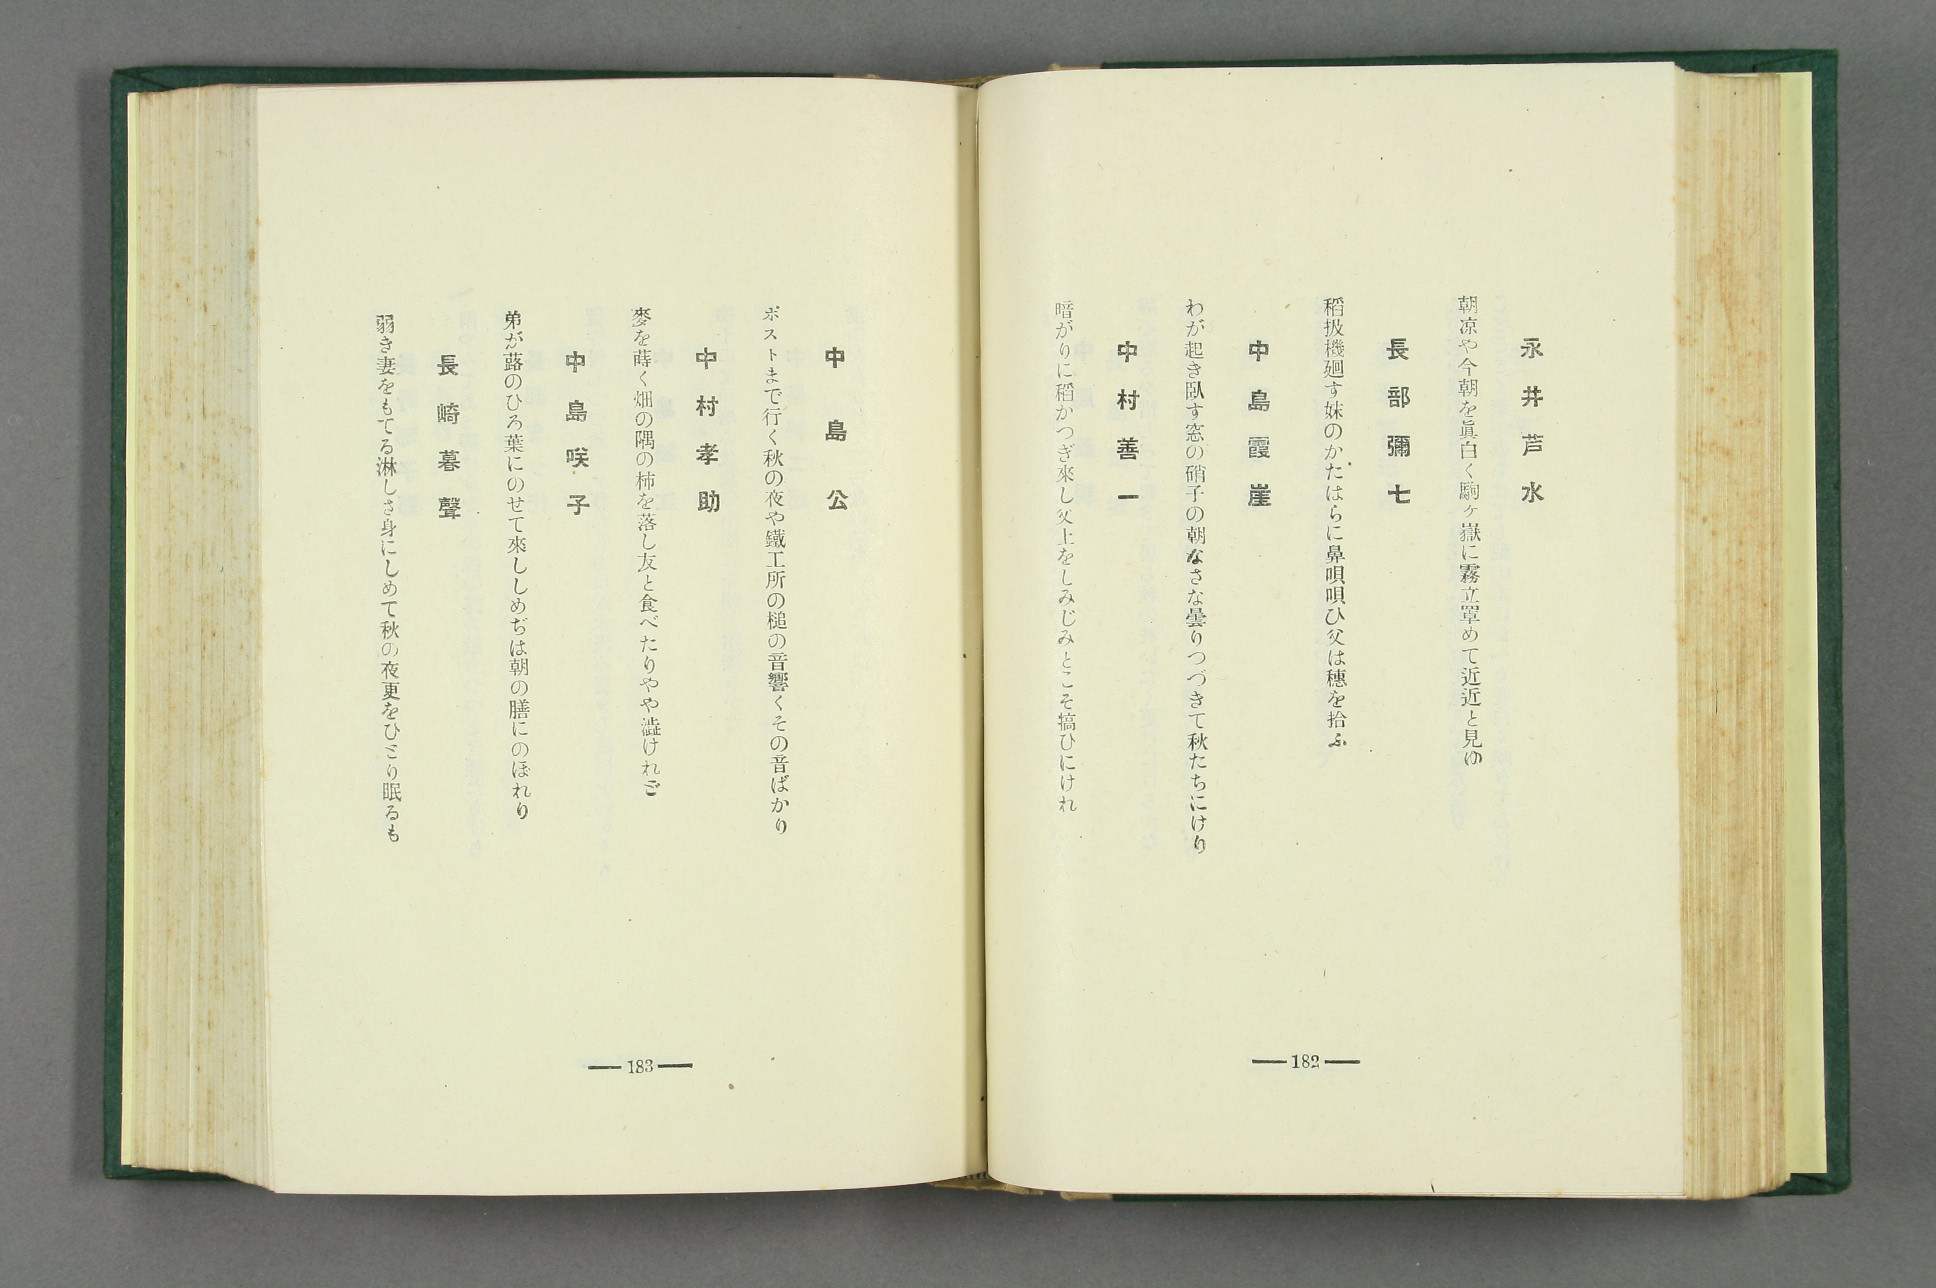 永井芦水
朝凉や今朝を眞白く駒ヶ嶽に霧立罩めて近近と見ゆ
長部彌七
稻扱機廻す妹のかたはらに鼻唄唄ひ父は穗を拾ふ
中島霞崖
わが起き臥す窓の硝子の朝なさな曇りつづきて秋たちにけり
中村善一
暗がりに稻かつぎ來し父上をしみじみとこそ犒ひにけれ
182
中島公
ポストまで行く秋の夜や鐵工所の槌の音響くその音ばかり
中村孝助
麥を蒔く畑の隅の柿を落し友と食べたりやや澁けれど
中島咲子
弟が蕗のひろ葉にのせて來ししめぢは朝の膳にのぼれり
長崎暮聲
弱き妻をもてる淋しさ身にしめて秋の夜更をひとり眠るも
183